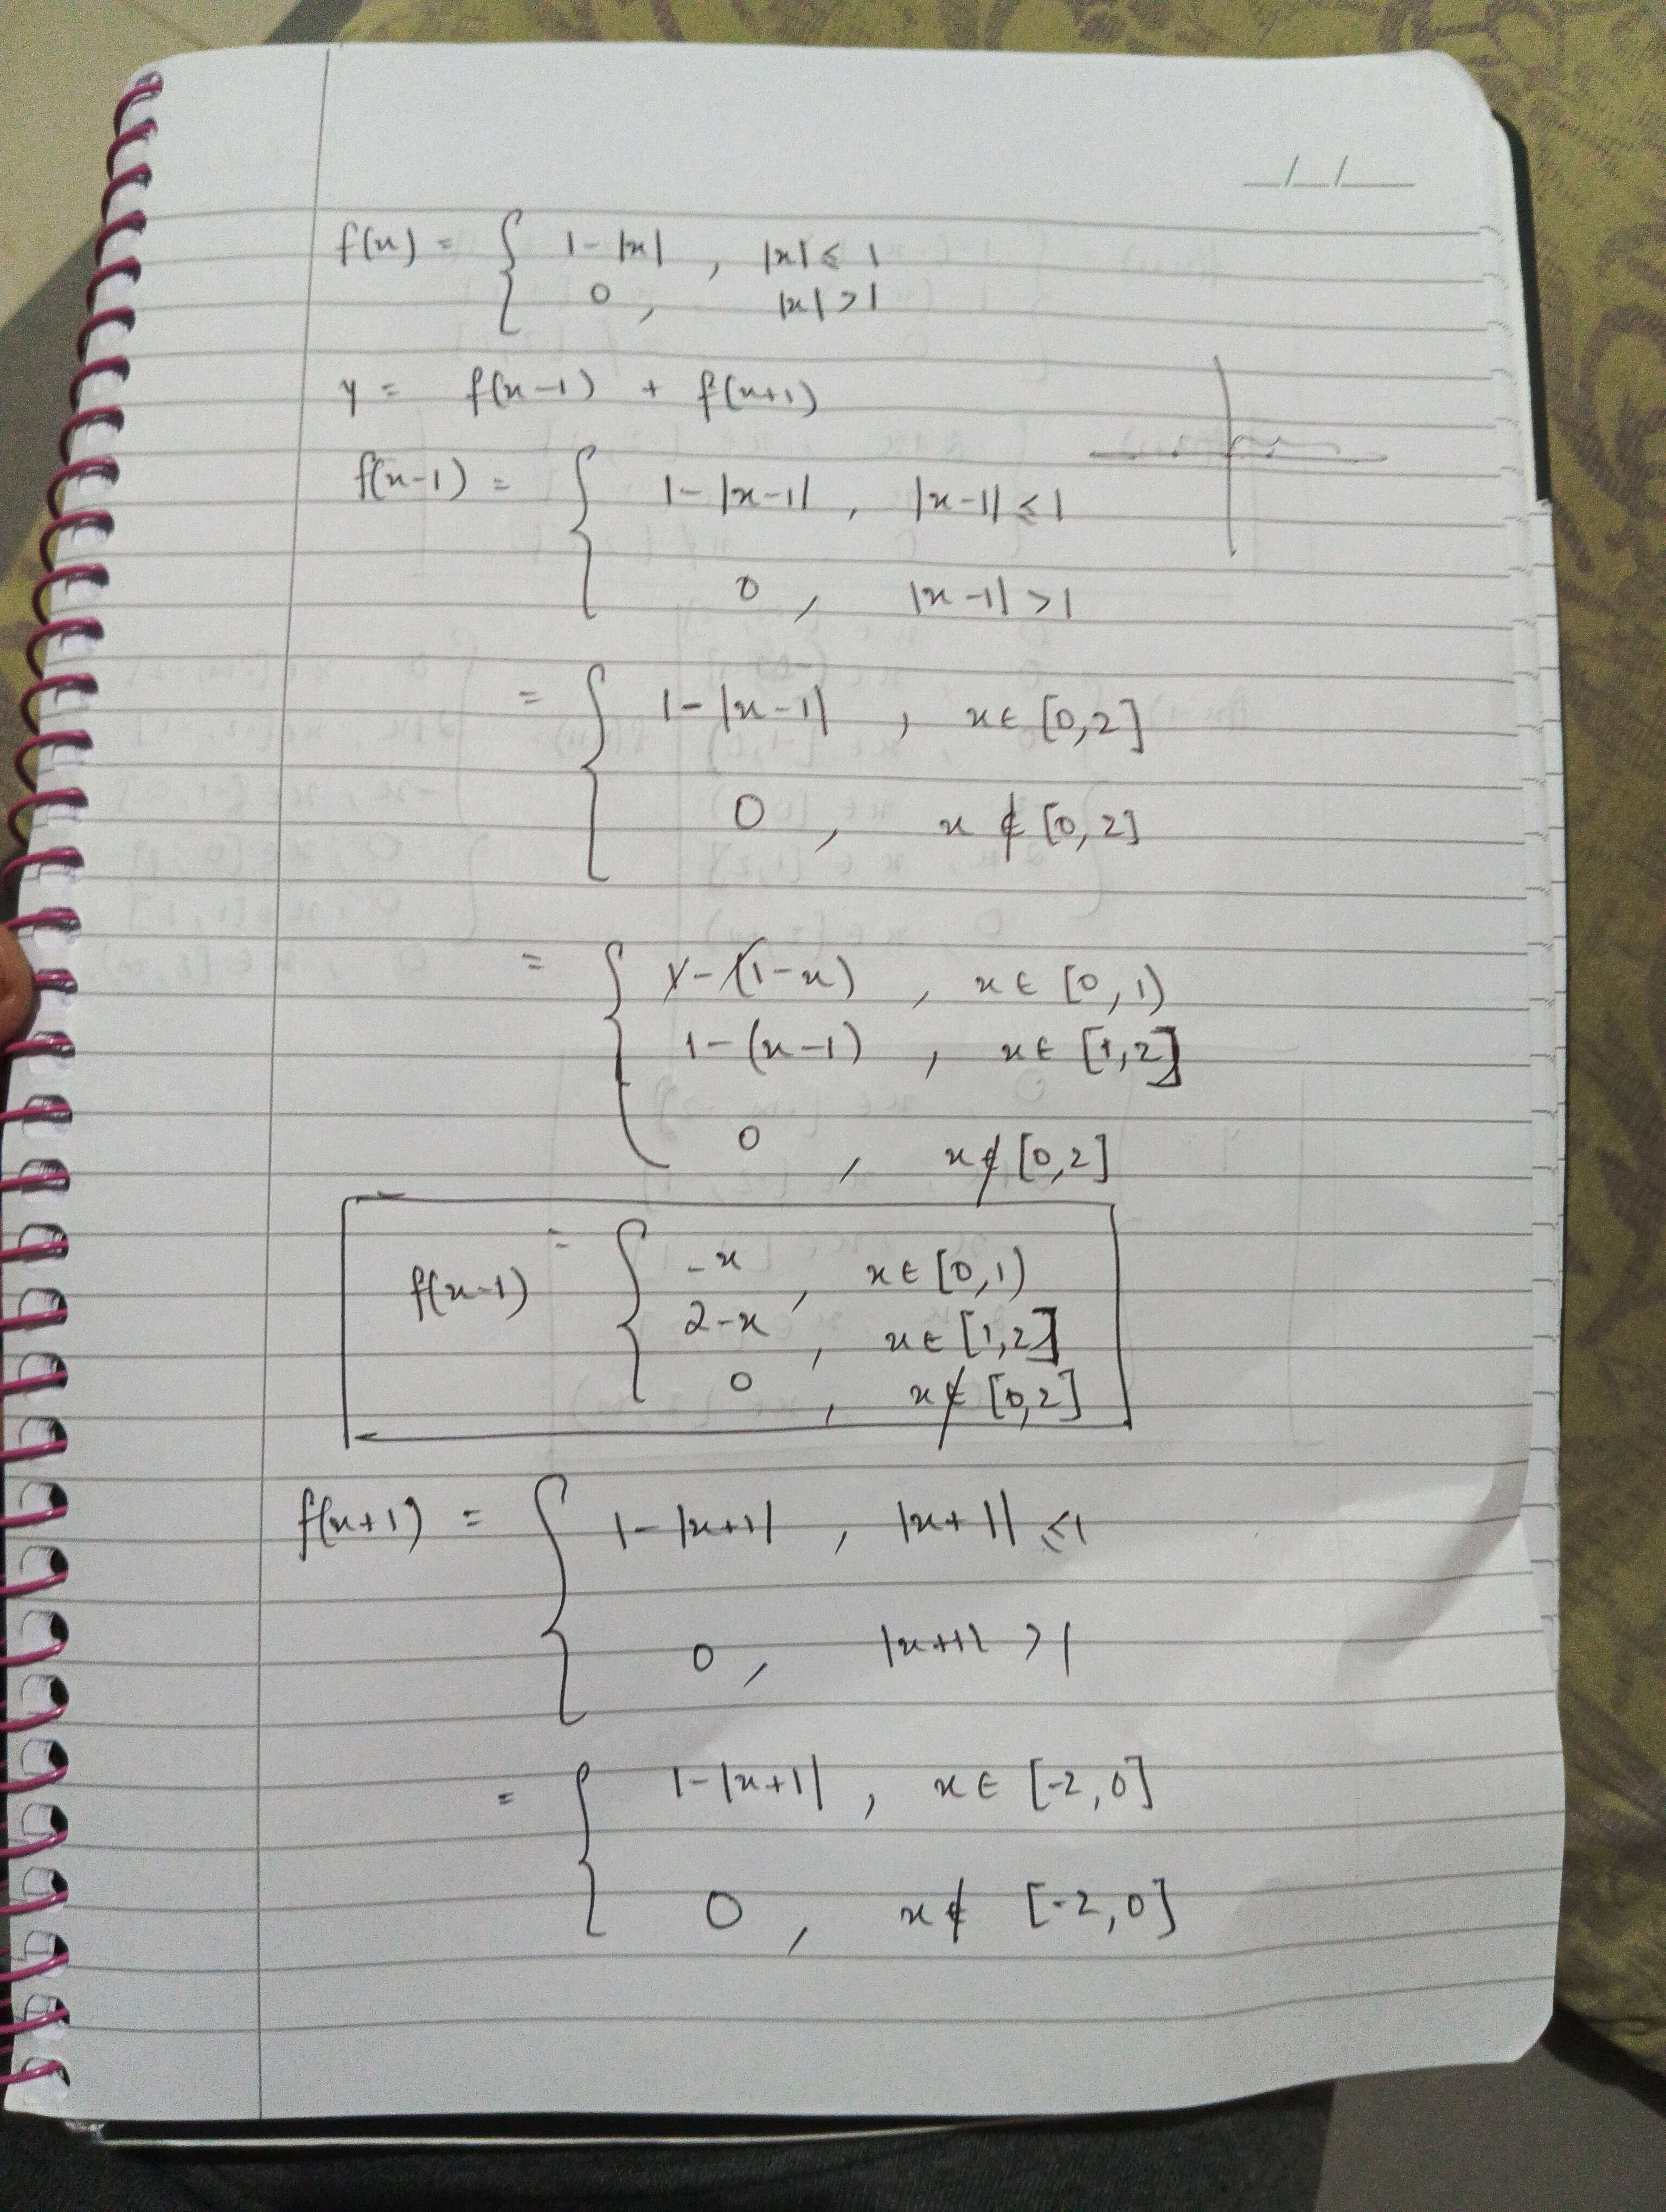 __/__/____
f(x) = { 1-|x| , |x| ≤ 1
0 , |x| >1
y = f(x-1) + f(x+1)
f(x-1) = { 1-|x-1| , |x-1| ≤ 1
0 , |x-1| >1
= { 1-|x-1| , x∈ [0,2]
0 , x ∉ [0,2]
= { 1-(1-x) , x∈ [0,1)
1-(x-1) , x∈ [1,2]
0 , x∉ [0,2]
=
f(x-1) { -x , x∈ [0,1)
2-x , x∈ [1,2]
0 , x∉ [0,2]
f(x+1) = { 1-|x+1| , |x+1| ≤1
0 , |x+1| >1
= { 1-|x+1| , x∈ [-2,0]
0 , x∉ [-2,0]